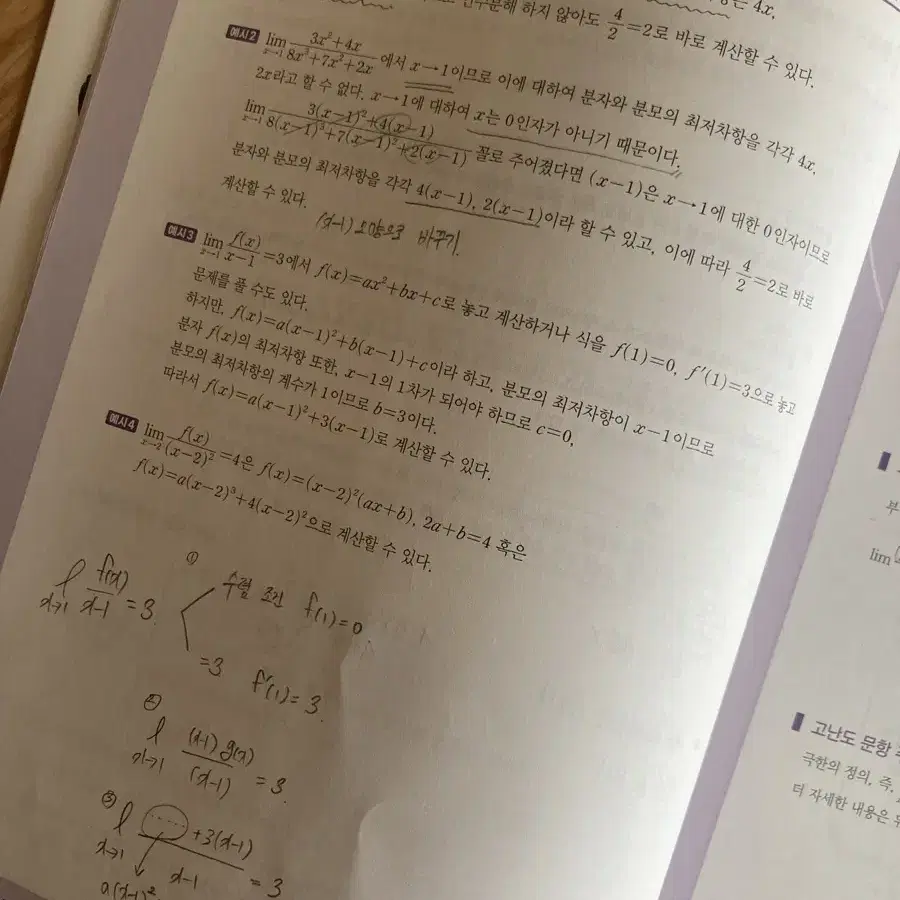 인수분해 하지 않아도 4/2=2로 바로 계산할 수 있다.
예시2 lim x→1 (3x²+4x)/(8x³+7x²+2x) 에서 x→1이므로 이에 대하여 분자와 분모의 최저차항을 각각 4x,
2x라고 할 수 없다. x→1에 대하여 x는 0인자가 아니기 때문이다.
lim x→1 (3(x-1)²+4(x-1))/(8(x-1)³+7(x-1)²+2(x-1)) 꼴로 주어졌다면 (x-1)은 x→1에 대한 0인자이므로
분자와 분모의 최저차항을 각각 4(x-1), 2(x-1)이라 할 수 있고, 이에 따라 4/2=2로 바로
계산할 수 있다.
(x-1)모양으로 바꾸기.
예시3 lim x→1 f(x)/(x-1) =3에서 f(x)=ax²+bx+c로 놓고 계산하거나 식을 f(1)=0, f'(1)=3으로 놓고
문제를 풀 수도 있다.
하지만, f(x)=a(x-1)²+b(x-1)+c이라 하고, 분모의 최저차항이 x-1이므로
분자 f(x)의 최저차항 또한, x-1의 1차가 되어야 하므로 c=0,
분모의 최저차항의 계수가 1이므로 b=3이다.
따라서 f(x)=a(x-1)²+3(x-1)로 계산할 수 있다.
예시4 lim x→2 f(x)/(x-2)² =4은 f(x)=(x-2)²(ax+b), 2a+b=4 혹은
f(x)=a(x-2)³+4(x-2)²으로 계산할 수 있다.
l x→1 f(x)/(x-1) = 3.
① 수렴 조건 f(1)=0.
=3 f'(1)=3.
② l x→1 (x-1)g(x)/(x-1) = 3.
③ l x→1 (.... +3(x-1))/(x-1) = 3
a(x-1)²
lim
고난도 문항
극한의 정의, 즉,
더 자세한 내용은